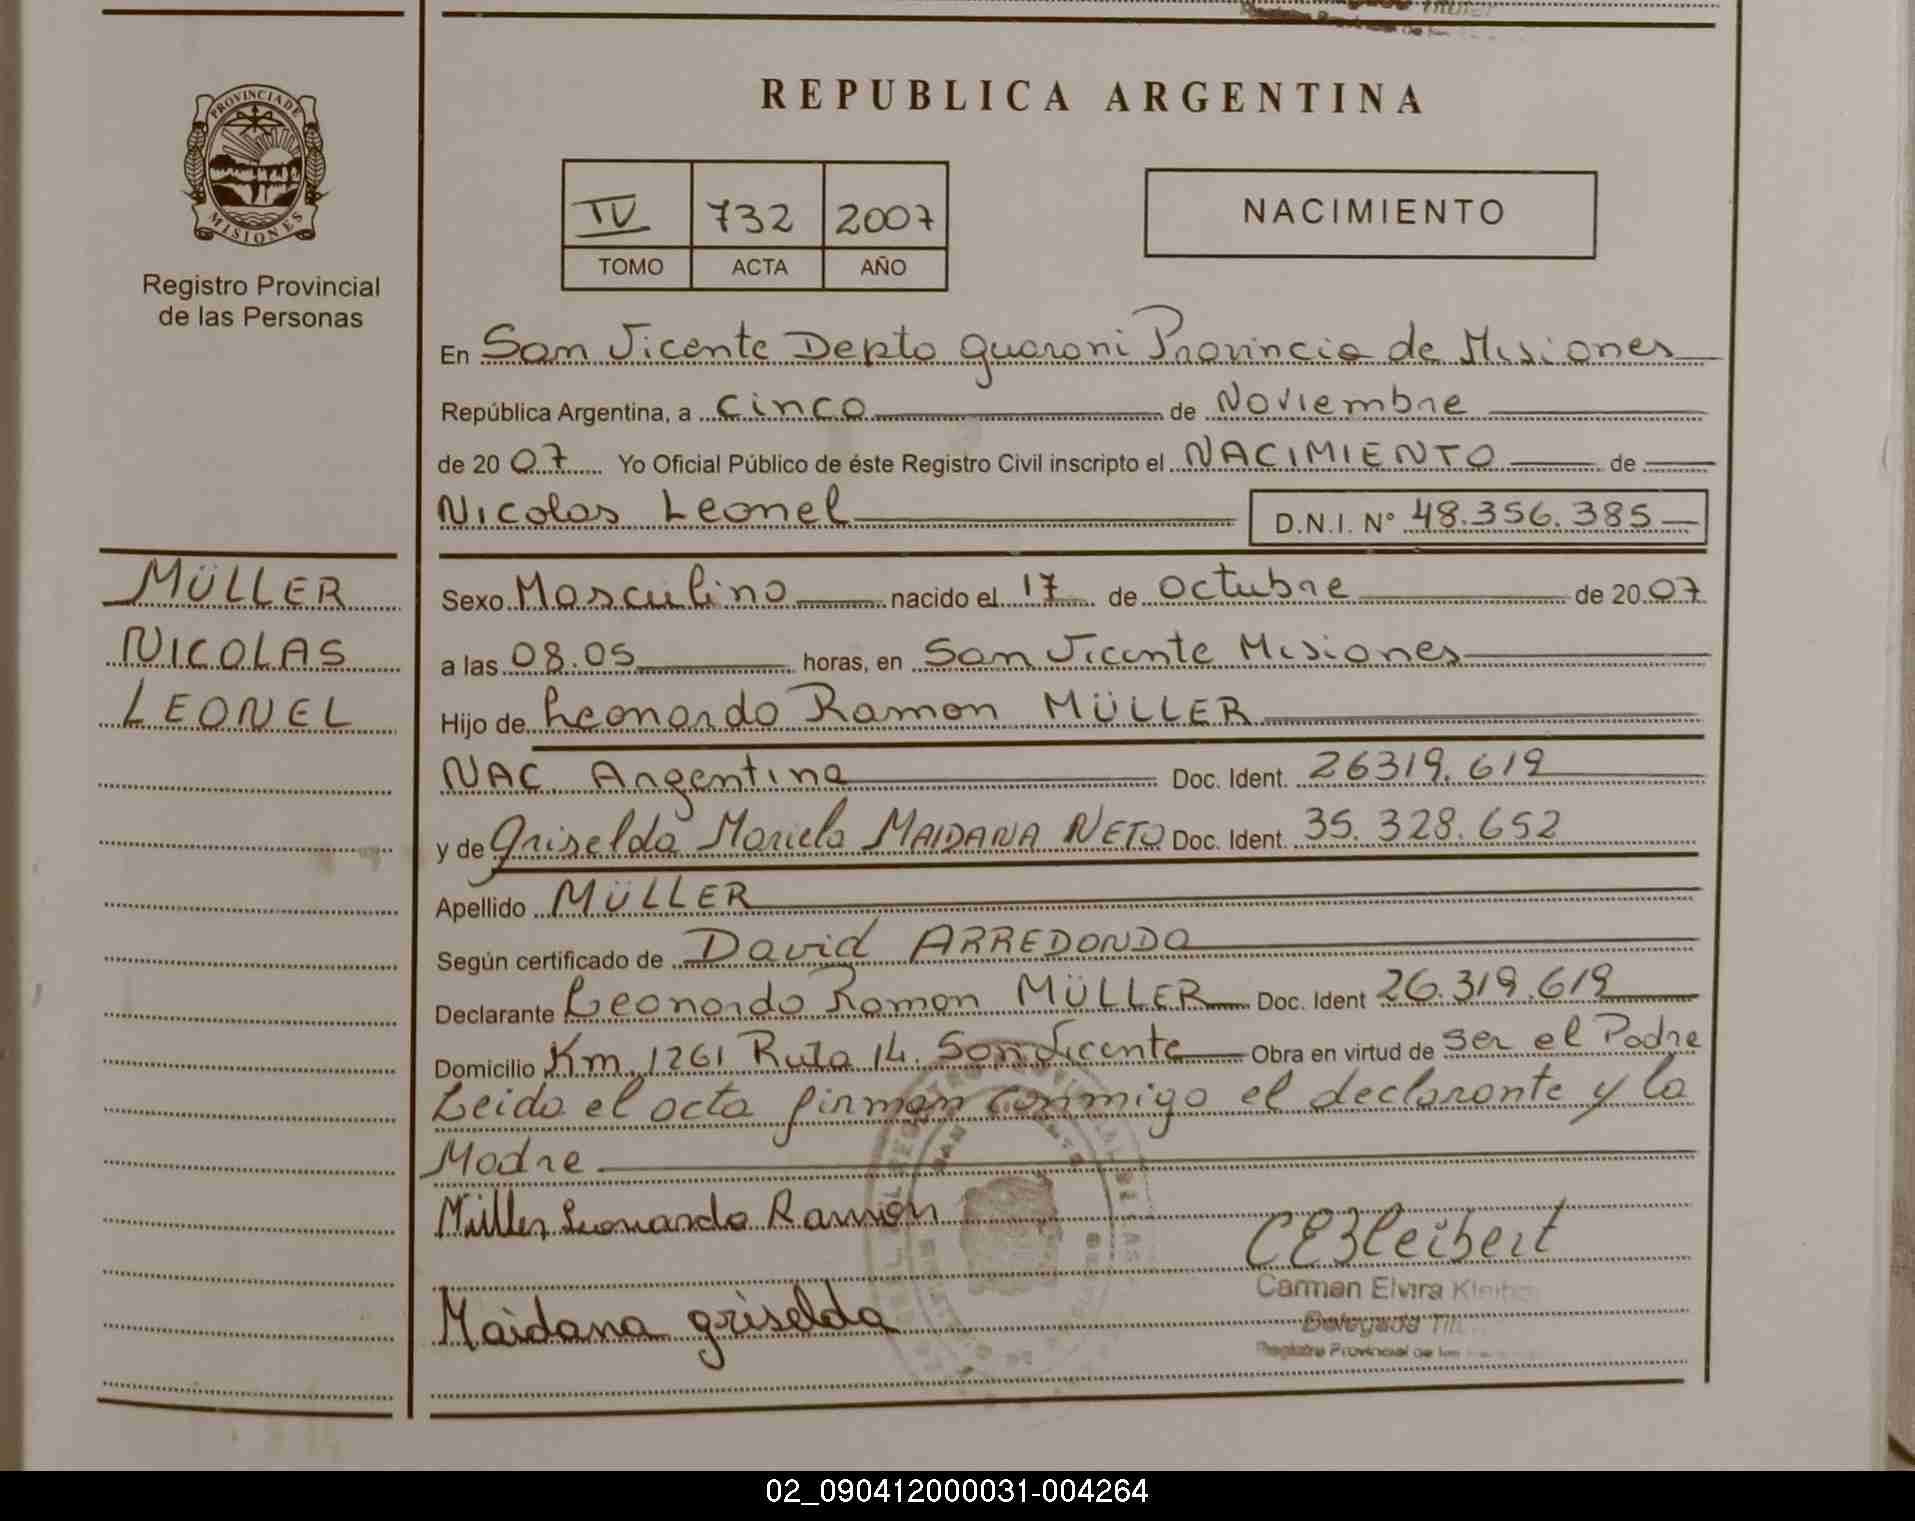 REPUBLICA ARGENTINA
PROVINCIA DE
MISIONES
Registro Provincial
de las Personas
IV 732 2007
TOMO ACTA AÑO
NACIMIENTO
En San Vicente Depto guarani Provincia de Misiones
República Argentina, a cinco de Noviembre
de 20 07 Yo Oficial Público de éste Registro Civil inscripto el NACIMIENTO de
Nicolas Leonel D.N.I. N° 48.356.385
MÜLLER
NICOLAS
LEONEL
Sexo Masculino nacido el 17 de octubre de 20 07
a las 08.05 horas, en San Vicente Misiones
Hijo de Leonardo Ramon MÜLLER
NAC. Argentina Doc. Ident. 26319.619
y de Griselda Mariela MAIDANA NETO Doc. Ident. 35.328.652
Apellido MÜLLER
Según certificado de David ARREDONDO
Declarante Leonardo Ramon MÜLLER Doc. Ident 26.319.619
Domicilio Km. 1261 Ruta 14. San Vicente Obra en virtud de ser el Padre
Leida el acta firman conmigo el declarante y la
Madre
Müller Leonardo Ramón
Maidana griselda
Carmen Elvira
Delegada
Registro Provincial de las
02_090412000031-004264